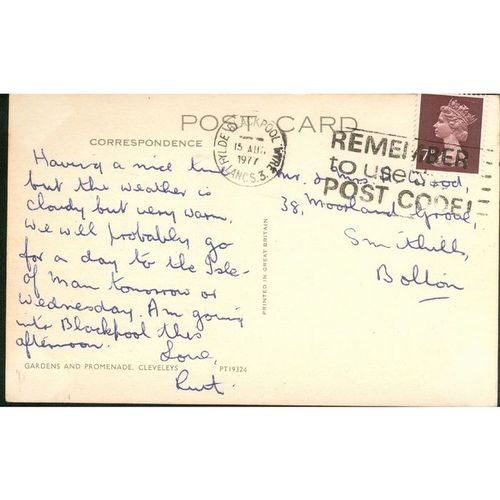 POST CARD
CORRESPONDENCE
FYLDE BLACKPOOL WYRE
15 AUG
1977
LANCS. 3.
REMEMBER
to use the
POST CODE!
7
Having a nice time
but the weather is
cloudy but very warm.
We will probably go
for a day to the Isle-
of Man tomorrow or
Wednesday. Am going
into Blackpool this
afternoon.
Love,
Mr. & Mrs. Wood,
38, Moorland Grove,
Smithills,
Bolton
PRINTED IN GREAT BRITAIN
GARDENS AND PROMENADE, CLEVELEYS
PT19324